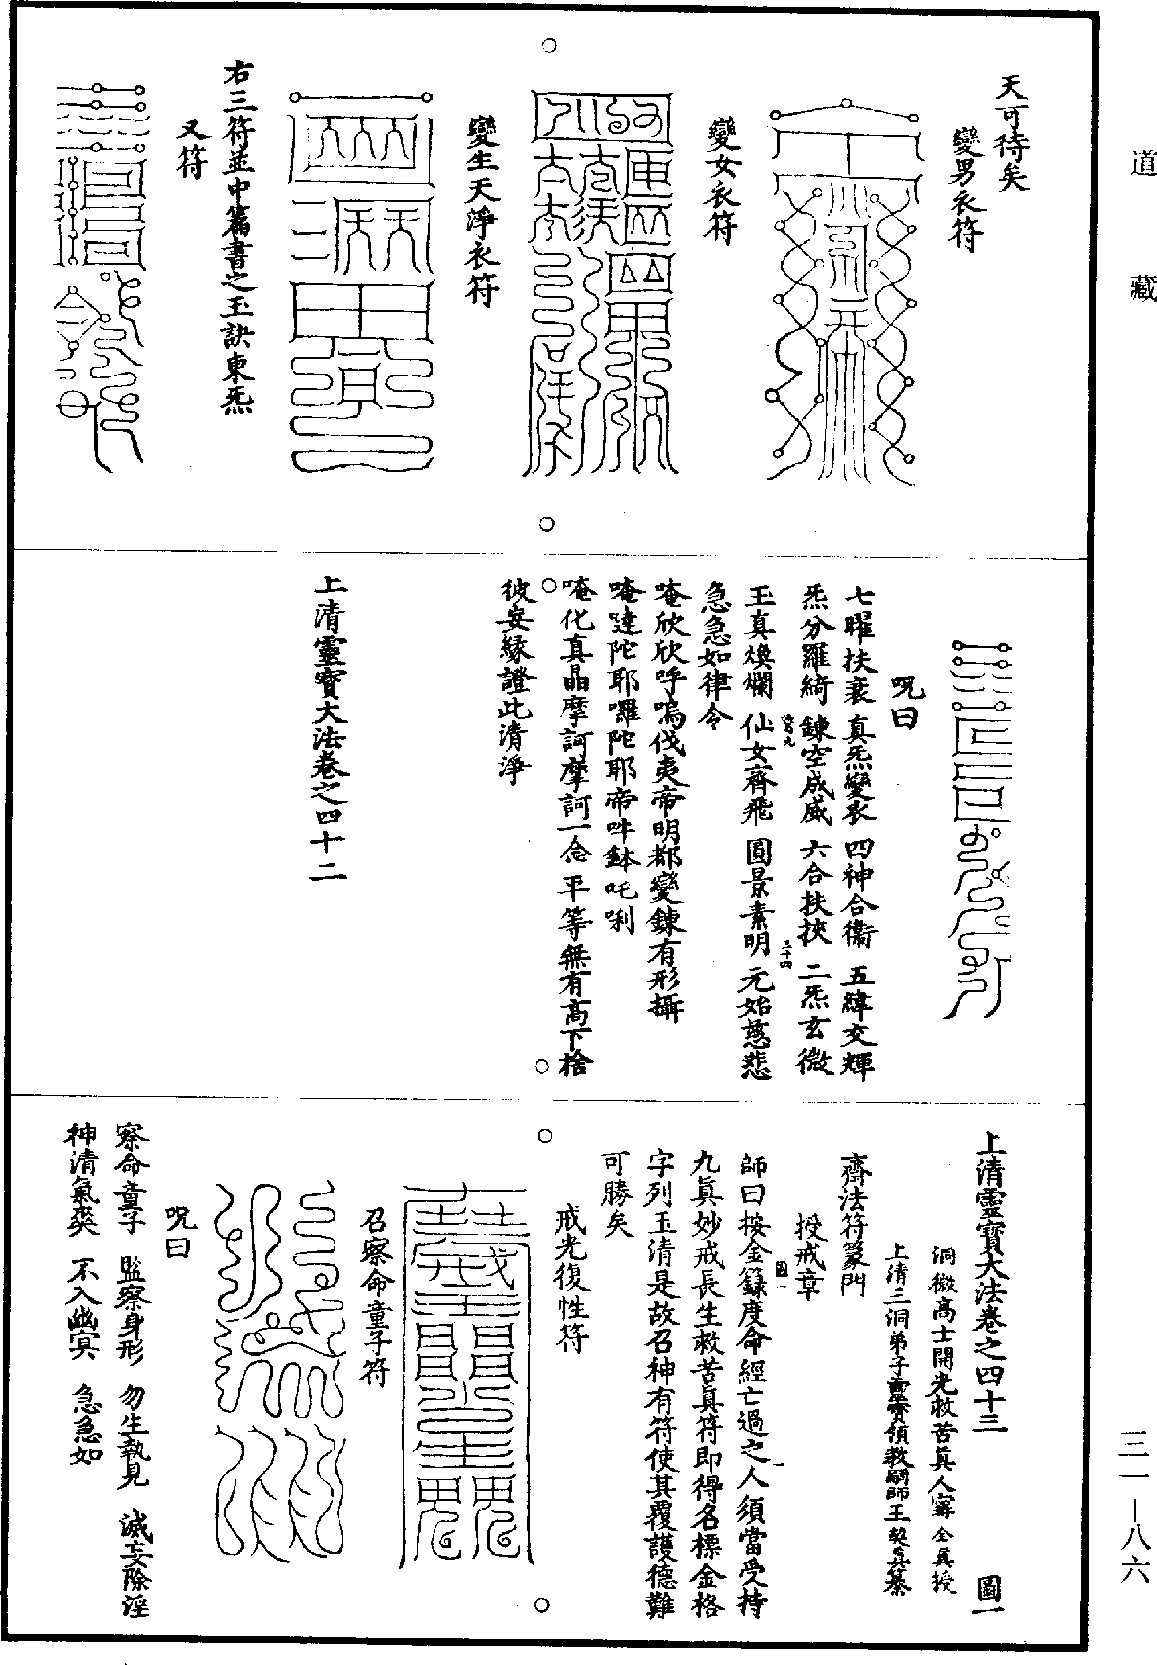 道藏
天可待矣
變男衣符
變女衣符
變生天淨衣符
右三符並中篇書之玉訣東炁
又符
呪曰
七曜扶衰 真炁變衣 四神合衛 五緯交輝
炁分羅綺 鍊空成威 六合扶挾 二炁玄微
玉真煥爛 仙女齊飛 圓景素明 元始慈悲
急急如律令
唵欣欣呼嗚伐夷帝明都變鍊有形攝
唵噠陀耶囉陀耶帝吽鉢吒唎
唵化真晶摩訶摩訶一念平等無有高下捨
彼妄緣證此清淨
上清靈寶大法卷之四十二
上清靈寶大法卷之四十三 圖一
洞微高士開光救苦真人甯全真授
上清三洞弟子靈寶領教嗣師王契真纂
齋法符篆門
授戒章
師曰按金籙度命經亡過之人須當受持
九真妙戒長生救苦真符即得名標金格
字列玉清是故召神有符使其覆護德難
可勝矣
戒光復性符
召察命童子符
呪曰
察命童子 監察身形 勿生執見 滅妄除淫
神清氣爽 不入幽冥 急急如
三一—八六